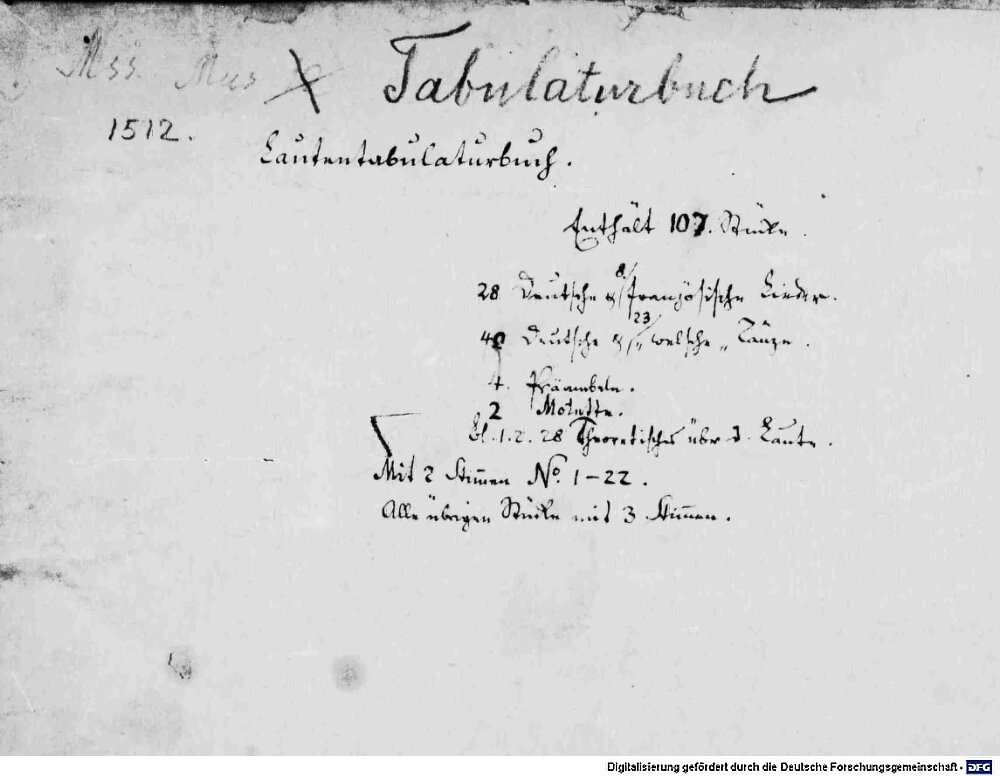 Mss. Mus Tabulaturbuch
1512.
Lautentabulaturbuch.
Enthält 107. Stücke.
28 Deutsche & 8/ französische Lieder.
40 Deutsche & 23/ „ welsche „ Tänze.
4. Präambeln.
2 Motette.
Bl. 1. 2. 28 Theoretisches über d. Laute.
Mit 2 Stimmen No. 1–22.
Alle übrigen Stücke mit 3 Stimmen.
Digitalisierung gefördert durch die Deutsche Forschungsgemeinschaft - DFG